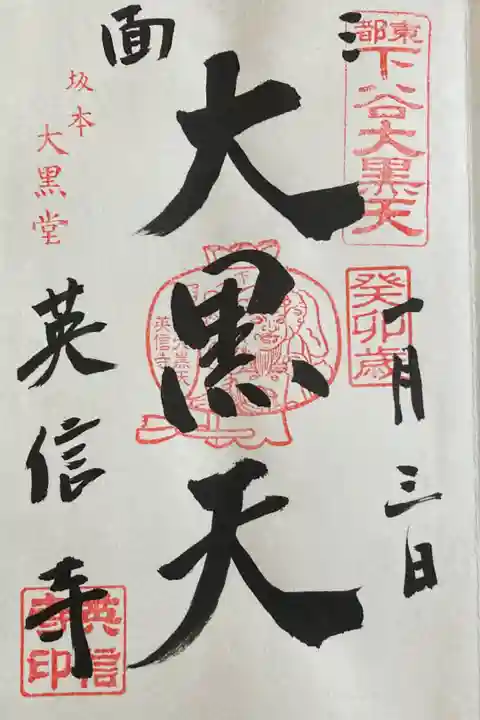 三面
東都
下谷大黒天
癸卯歳
一月三日
大黒天
下
大黒天
英信寺
坂本
大黒堂
英信寺
英信
寺印